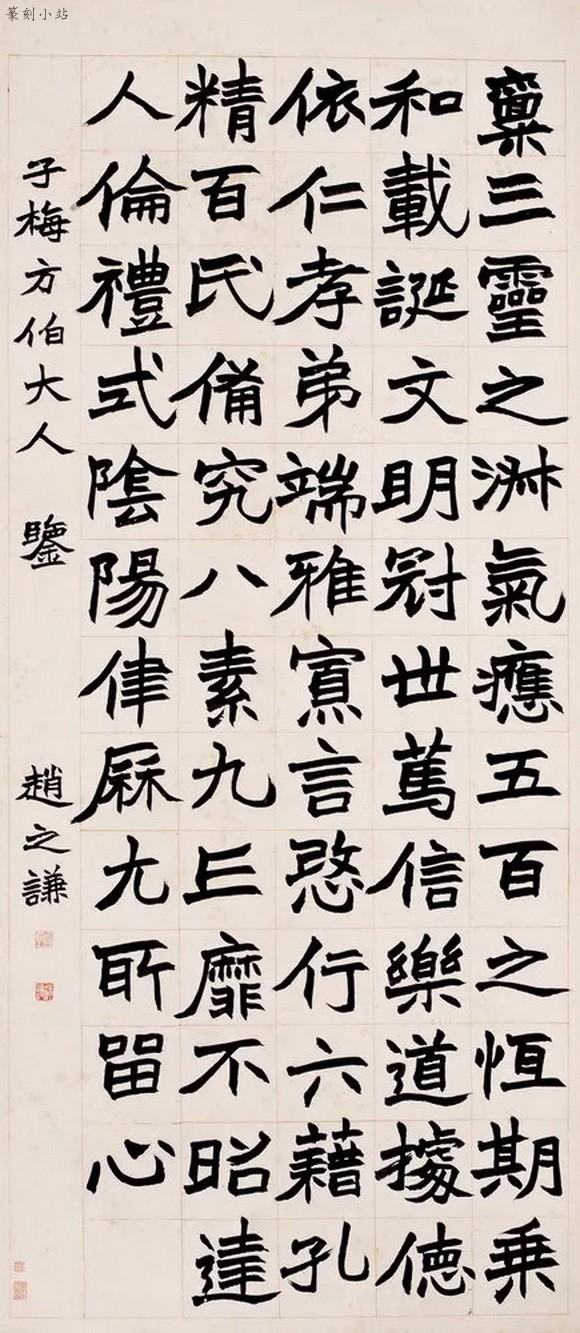 篆刻小站
稟三靈之淋氣應五百之恆期乗
和載誕文明冠世篤信樂道據德
依仁孝弟端雅寡言慜行六藉孔
精百氏備究八素九丘靡不昭達
人倫禮式陰陽律厤尤所留心
子梅方伯大人 鑒
趙之謙